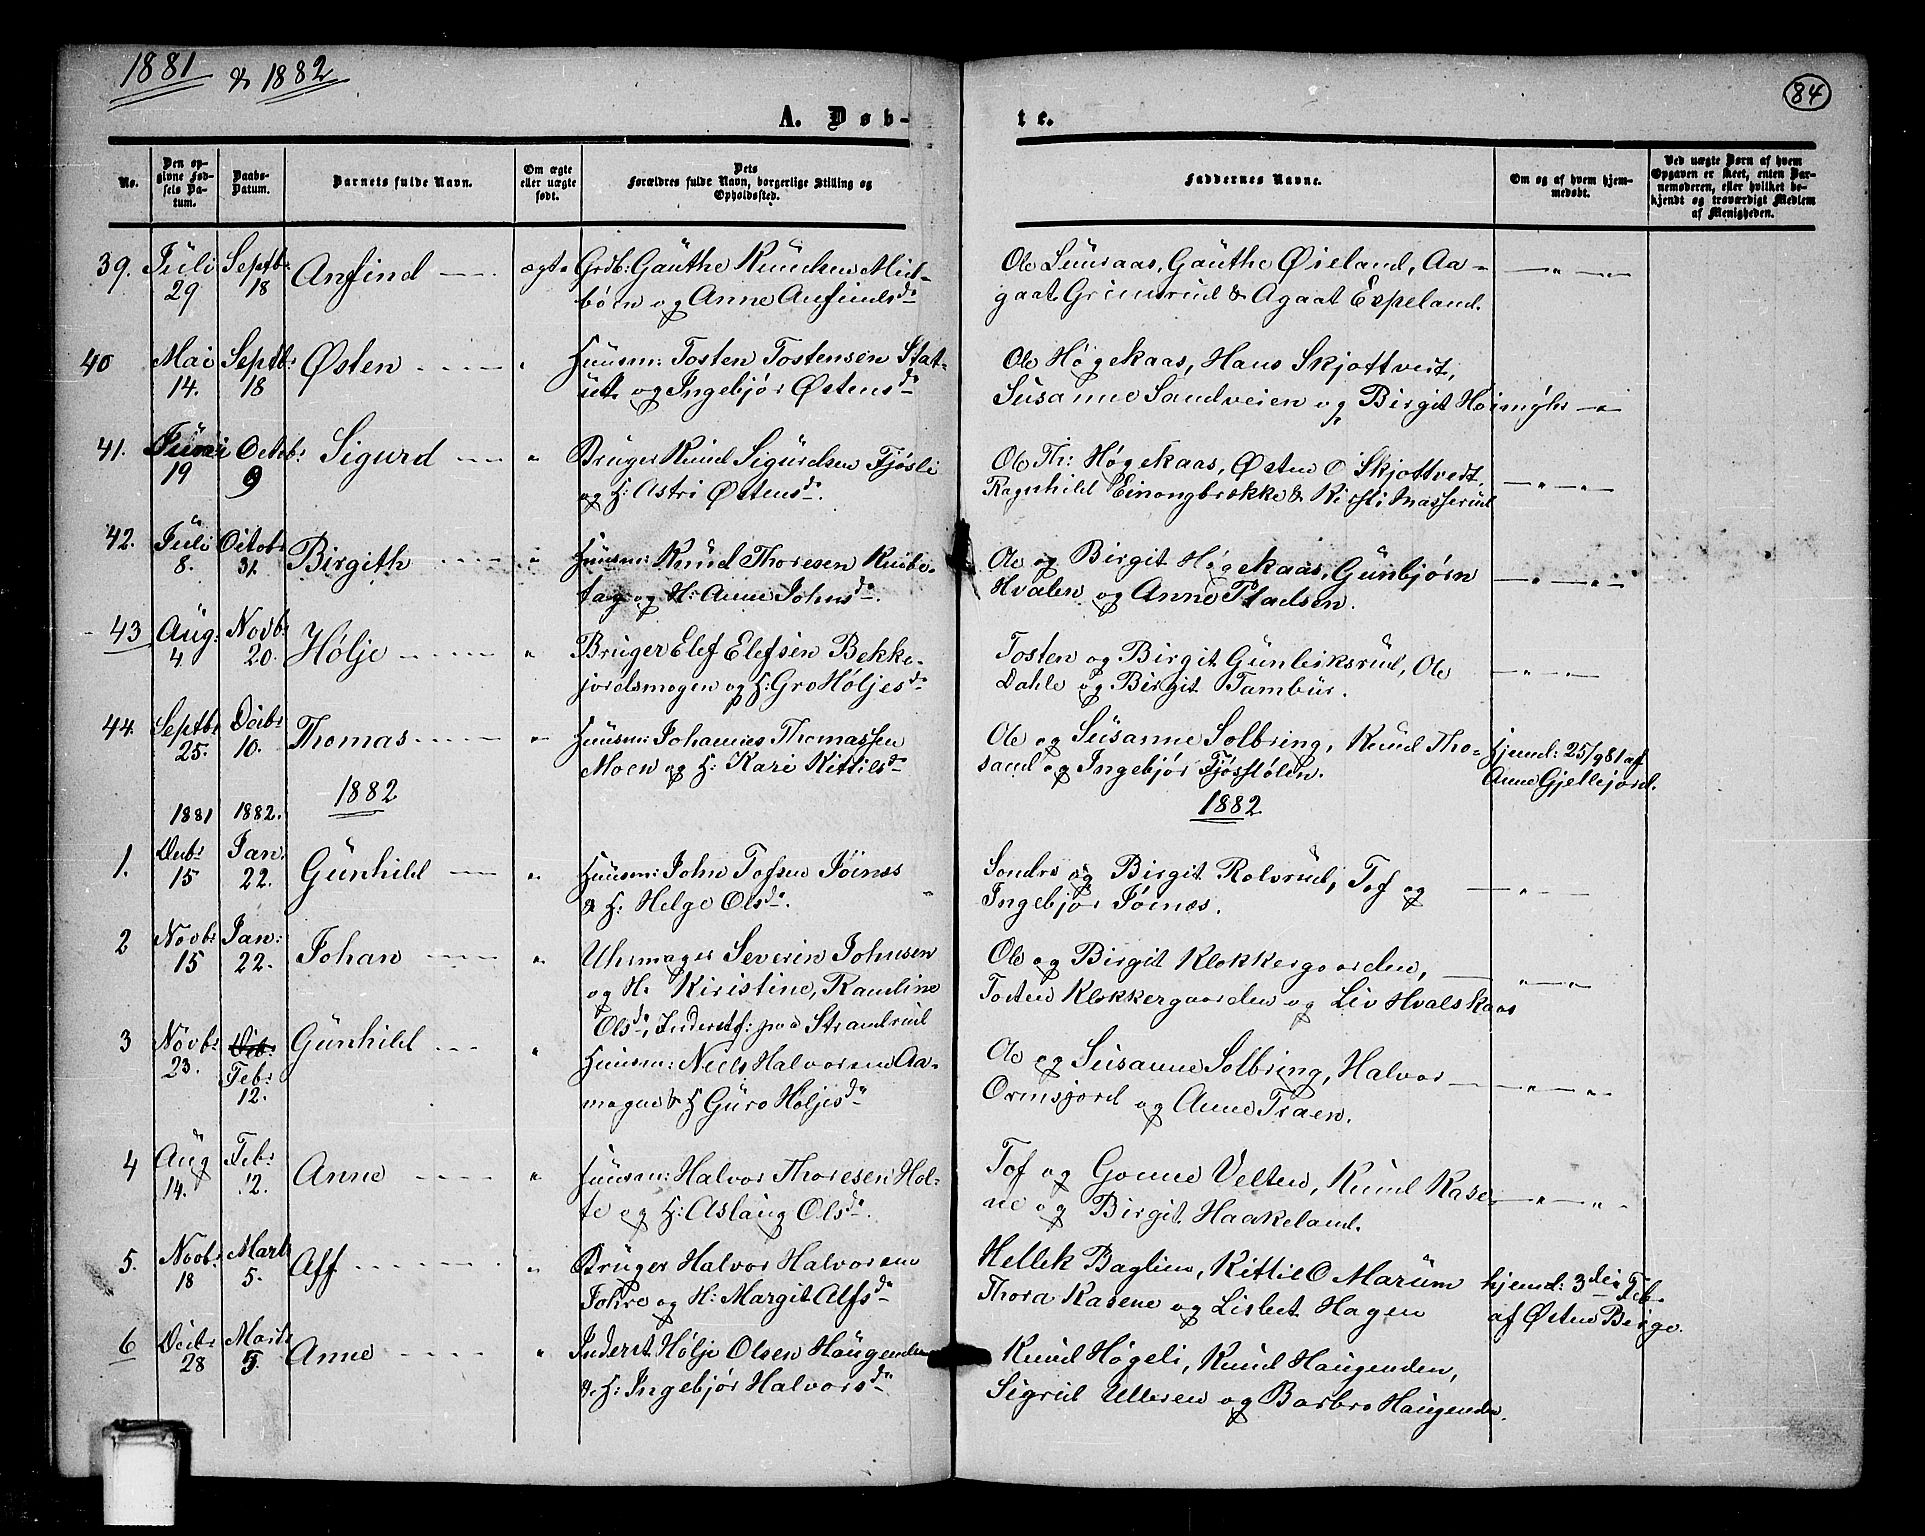 1881 & 1882
84
A. Døb-
te.
No.
Den op-
givne Fød-
sels Da-
tum.
Daabs-
Datum.
Barnets fulde Navn.
Om ægte
eller uægte
født.
Dets
Forældres fulde Navn, borgerlige Stilling og
Opholdssted.
Faddernes Navne.
Om og af hvem hjem-
medøbt.
Ved uægte Børn af hvem
Opgaven er skeet, enten Bar-
nemoderen, eller hvilket be-
kjendt og troværdigt Medlem
af Menigheden.
39. Juli 29 Septbr 18 Anfind ægte Grdb: Gauthe Knudsen Mid-
bøen og Anne Anfindsdr
Ole Luuraas, Gauthe Øieland, Aa-
gaat Grimsrud & Agaat Espeland.
40 Mai 14. Septbr 18 Østen " Huusm: Tosten Tostensen Stat-
ut og Ingebjør Østensdr
Ole Høgekaas, Hans Skjottveit,
Susanne Sandveien og Birgit
41. Juni 19 Octobr 9 Sigurd " Bruger Knud Sigurdsen Fjøsli
og H: Astri Østensdr.
Ole Th: Høgekaas, Østen O Skjottvedt,
Ragnhild Einongbrække & Kirsti Masserud
42. Juli 8. Octobr 31. Birgith " Huusm: Knud Thoresen
og H: Anne Johnsdr.
Ole og Birgit Høgekaas, Gunbjørn
Hvalen og Anne Pladsen.
43 Aug: 4 Novbr 20. Hølje " Bruger Elef Elefsen Bekke-
jordsmogen og H: Gro Høljesdr
Tosten og Birgit Gunleiksrud, Ole
Dahle og Birgit Tambur.
44. Septbr 25. Decbr 10. Thomas " Huusm: Johannes Thomassen
Moen og H: Kari Kittilsdr
Ole og Susanne Solbring, Knud Tho-
sand og Ingebjør Fjøsstølen.
hjemd: 25/9 81 af
Anne Gjellejord.
1882
1882
1881 1882.
1. Decbr 15 Jan. 22. Gunhild " Huusm: John Tofsen Jøinæs
& H: Helge Olsdr.
Sondre og Birgit Rolvsrud, Tof og
Ingebjør Jøinæs.
2 Novbr 15 Jan: 22. Johan " Uhrmager Severin Johnsen
og H: Kiristine, Ramline
Olsdr, Inderstf: paa Strandrud
Ole og Birgit Klokkergaarden,
Tosten Klokkergaarden og Liv Hvalskaas
3 Novbr 23. Febr 12. Gunhild " Huusm: Niels Halvorsen Aa-
mogne & H Guro Høljesdr
Ole og Susanne Solbring, Halvor
Ormsjord og Anne Traen.
4 Aug 14. Febr 12. Anne " Huusm: Halvor Thoresen Hol-
te og H: Aslaug Olsdr.
Tof og Gonne Velten, Knud Kase-
ne og Birgit Haakeland.
5. Novbr 18 Marts 5. Alf " Bruger Halvor Halvorsen
Johre og H: Margit Alfsdr
Hellek Baglien, Kittil O Marum
Thora Kasene og Lisbet Hagen
hjemd: 3die Feb.
af Østen Berge.
6 Decbr 28 Marts 5 Anne " Inderst Hølje Olsen Haugenden
& H: Ingebjør Halvorsdr
Knud Høgeli, Knud Haugenden,
Sigrid Ulleren og Barbro Haugenden.